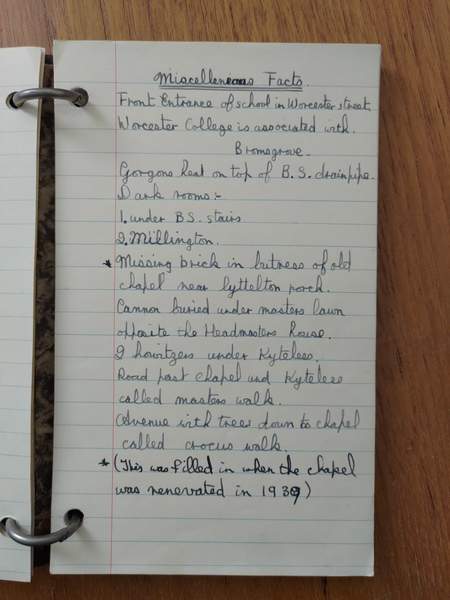 Miscellaneous Facts.
Front Entrance of school in Worcester street
Worcester College is associated with
Bromsgrove.
Gorgons Head on top of B.S. drainpipe.
Dark rooms:-
1. under B.S. stairs
2. Millington.
* Missing brick in butress of old
chapel near Lyttelton porch.
Cannon buried under masters lawn
opposite the Headmasters house.
2 howitzers under Kyteless.
Road past chapel and Kyteless
called masters walk.
Avenue with trees down to chapel
called crocus walk.
* (This was filled in when the chapel
was renevated in 1939)